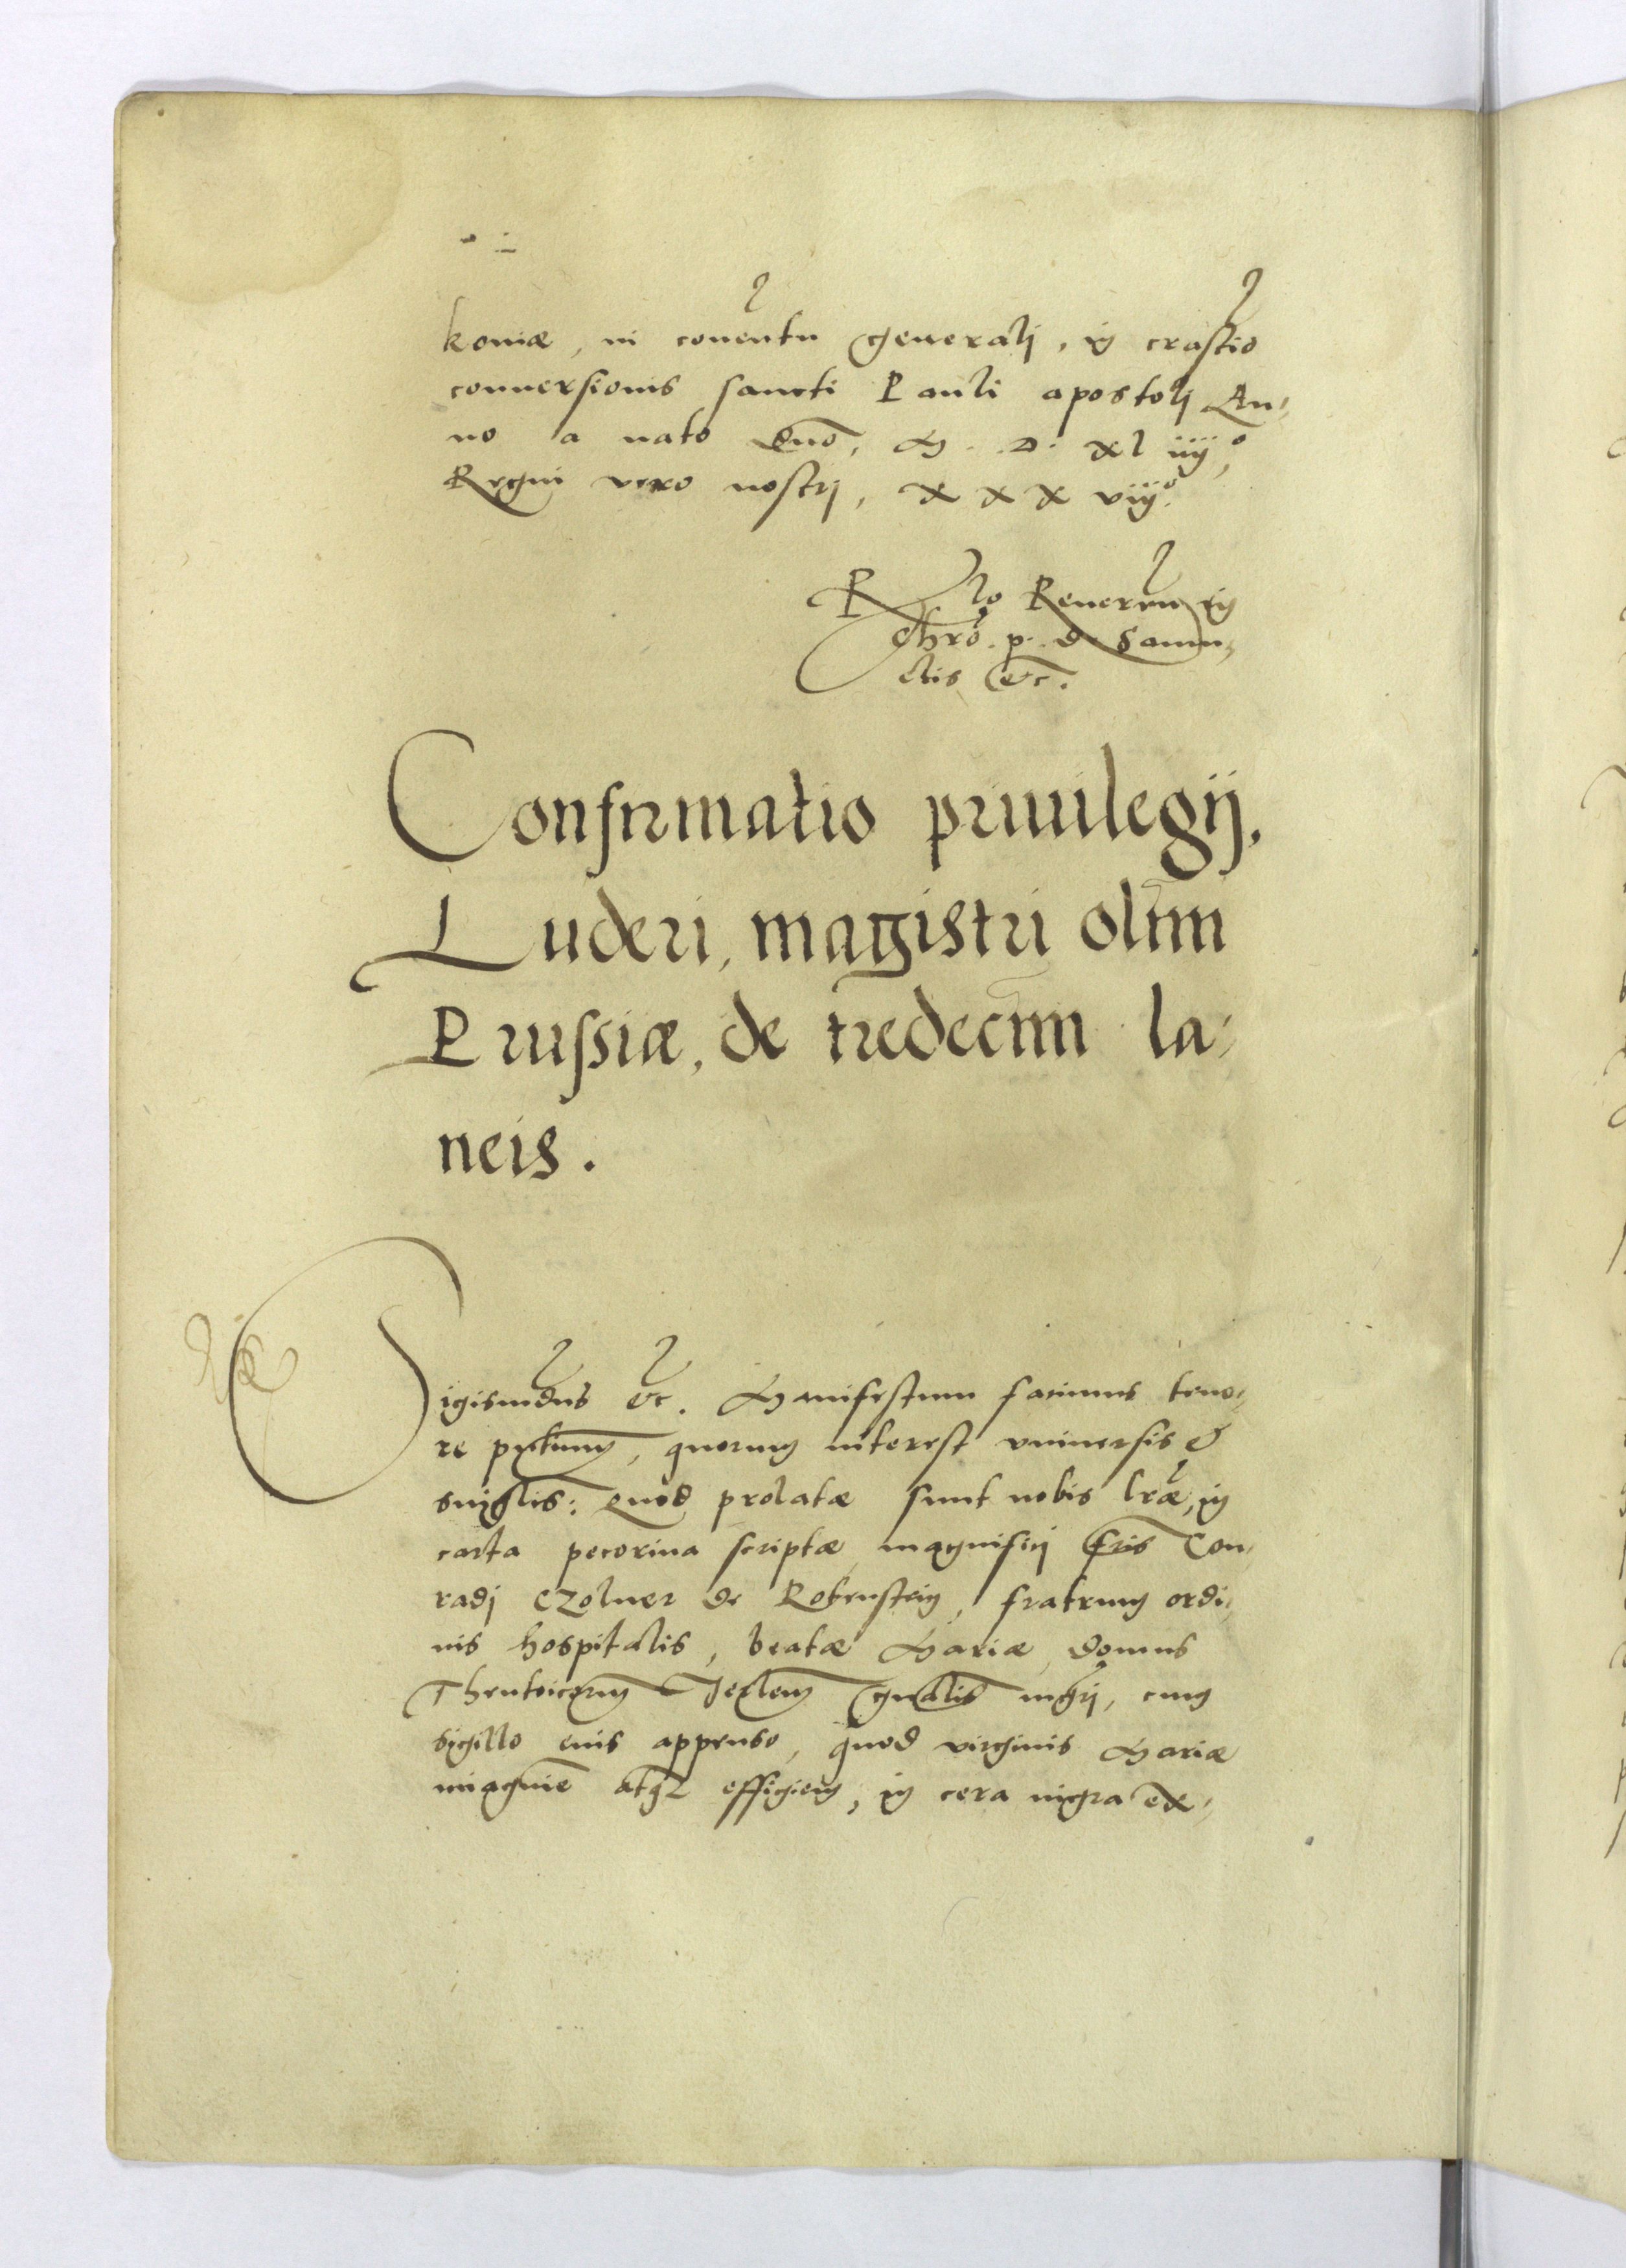 koniæ, in couentu generalj, in crastio
conuersionis sancti Pauli apostolj An,
no a nato dno, M. D. xl iiijo,
Regni vero nostrj, x x x viijo.
Rlo Reueren in
chro. p. d. Samu,
elis etc.
Confirmatio priuilegij.
Luderi, magistri olim
Prussiæ, de tredecim la,
neis.
Sigismdus etc. Manifestum facimus teno,
re pntium, quorum interest vniuersis et
singlis: Quod prolatæ sunt nobis lræ, in
carta pecorina scriptæ magnificj fris Con,
radj Czolner de Rotenstein, fratrum ordi,
nis hospitalis, beatæ Mariæ, domus
Theutoicorum Jerlem gnalis mgrj, cum
sigillo eius appenso, quod virginis Mariæ
imaginē atqz effigiem, in cera nigra ex,